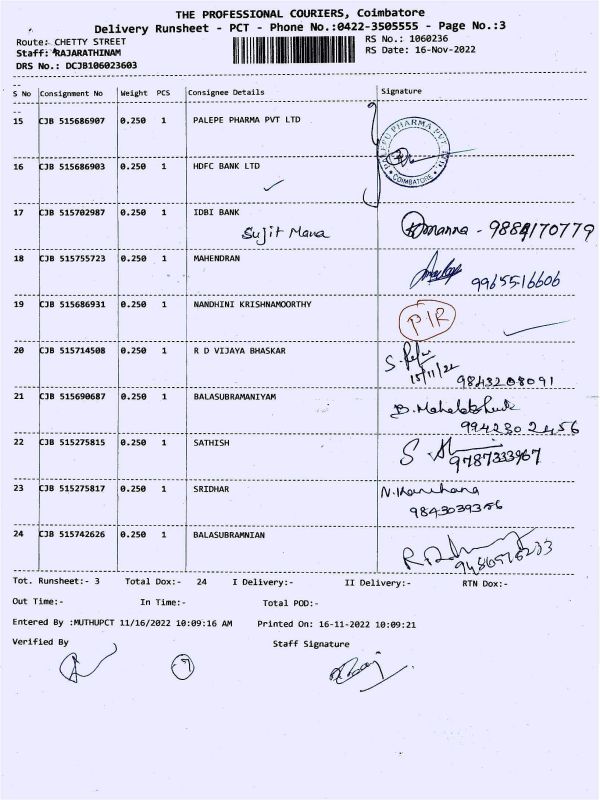 THE PROFESSIONAL COURIERS, Coimbatore
Delivery Runsheet - PCT - Phone No.:0422-3505555 - Page No.:3
Route: CHETTY STREET
RS No.: 1060236
Staff: RAJARATHINAM
RS Date: 16-Nov-2022
DRS No.: DCJB106023603
S No Consignment No Weight PCS Consignee Details Signature
15 CJB 515686907 0.250 1 PALEPE PHARMA PVT LTD
PHARMA PVT
COIMBATORE
16 CJB 515686903 0.250 1 HDFC BANK LTD
17 CJB 515702987 0.250 1 IDBI BANK
Sujit Mana
manna - 9884170779
18 CJB 515755723 0.250 1 MAHENDRAN
9965516606
19 CJB 515686931 0.250 1 NANDHINI KRISHNAMOORTHY
P/R
20 CJB 515714508 0.250 1 R D VIJAYA BHASKAR
15/11/22
9843208091
21 CJB 515690687 0.250 1 BALASUBRAMANIYAM
9942302456
22 CJB 515275815 0.250 1 SATHISH
23 CJB 515275817 0.250 1 SRIDHAR
9843039356
24 CJB 515742626 0.250 1 BALASUBRAMNIAN
Tot. Runsheet:- 3 Total Dox:- 24 I Delivery:- II Delivery:- RTN Dox:-
Out Time:- In Time:- Total POD:-
Entered By :MUTHUPCT 11/16/2022 10:09:16 AM Printed On: 16-11-2022 10:09:21
Verified By Staff Signature